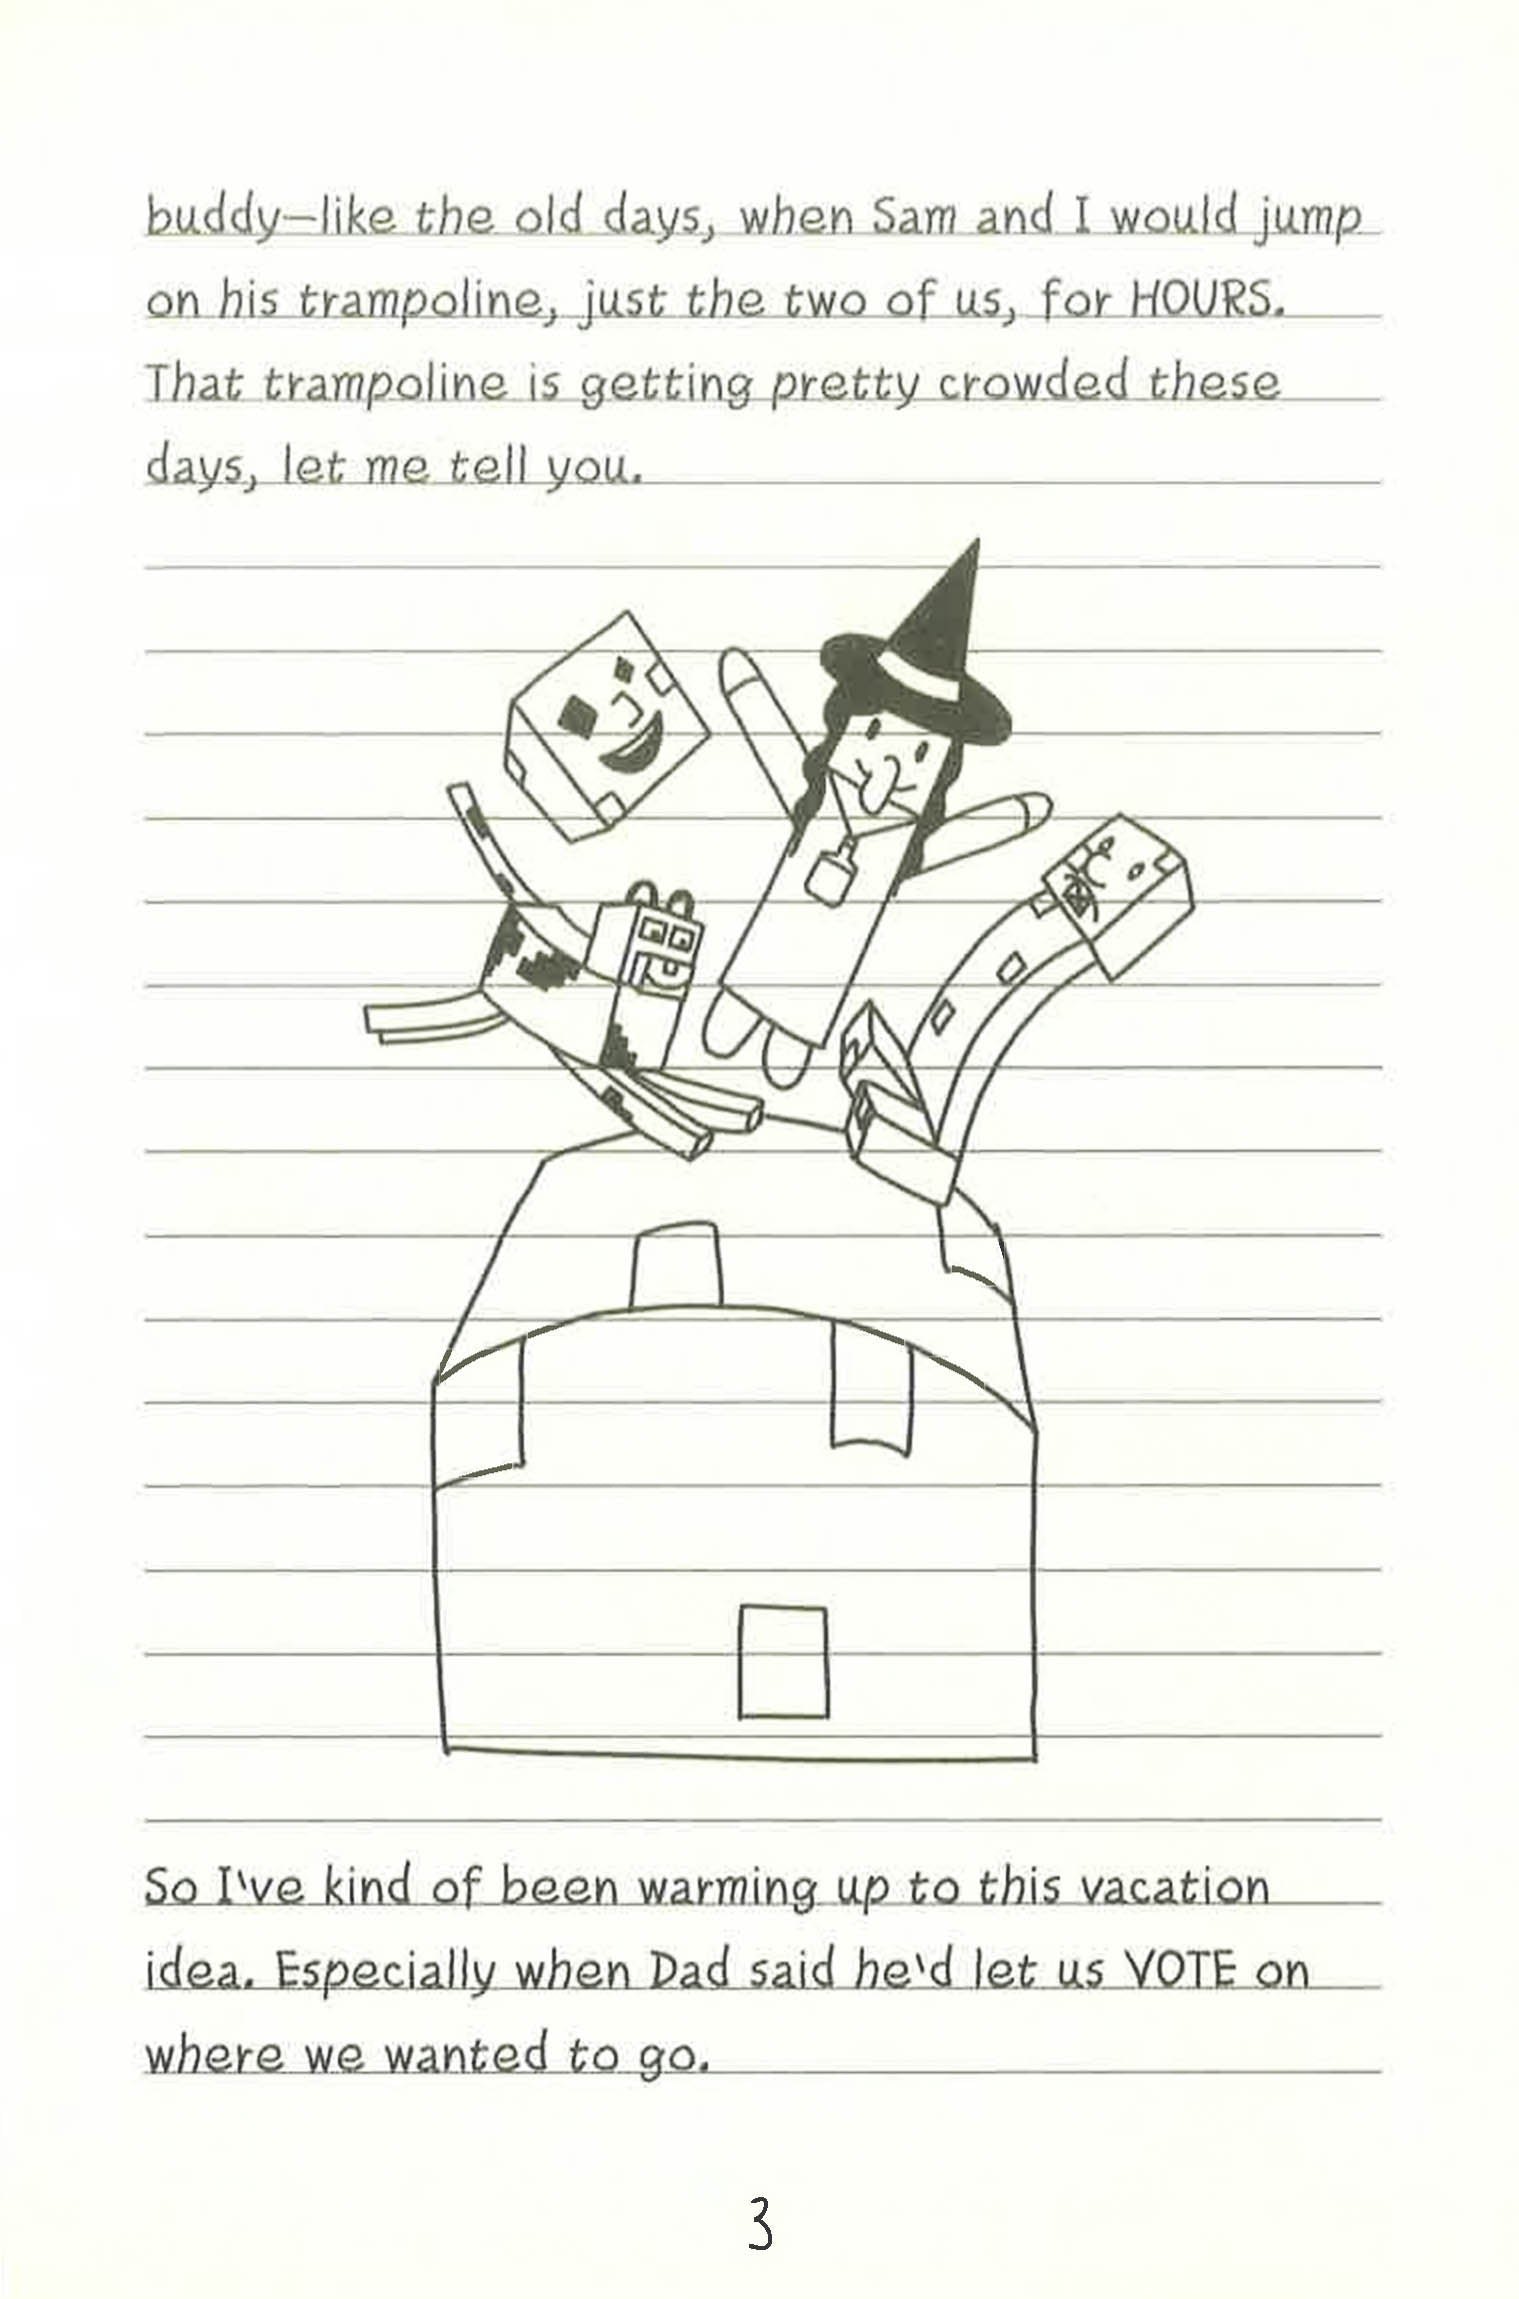 buddy—like the old days, when Sam and I would jump
on his trampoline, just the two of us, for HOURS.
That trampoline is getting pretty crowded these
days, let me tell you.
So I've kind of been warming up to this vacation
idea. Especially when Dad said he'd let us VOTE on
where we wanted to go.
3